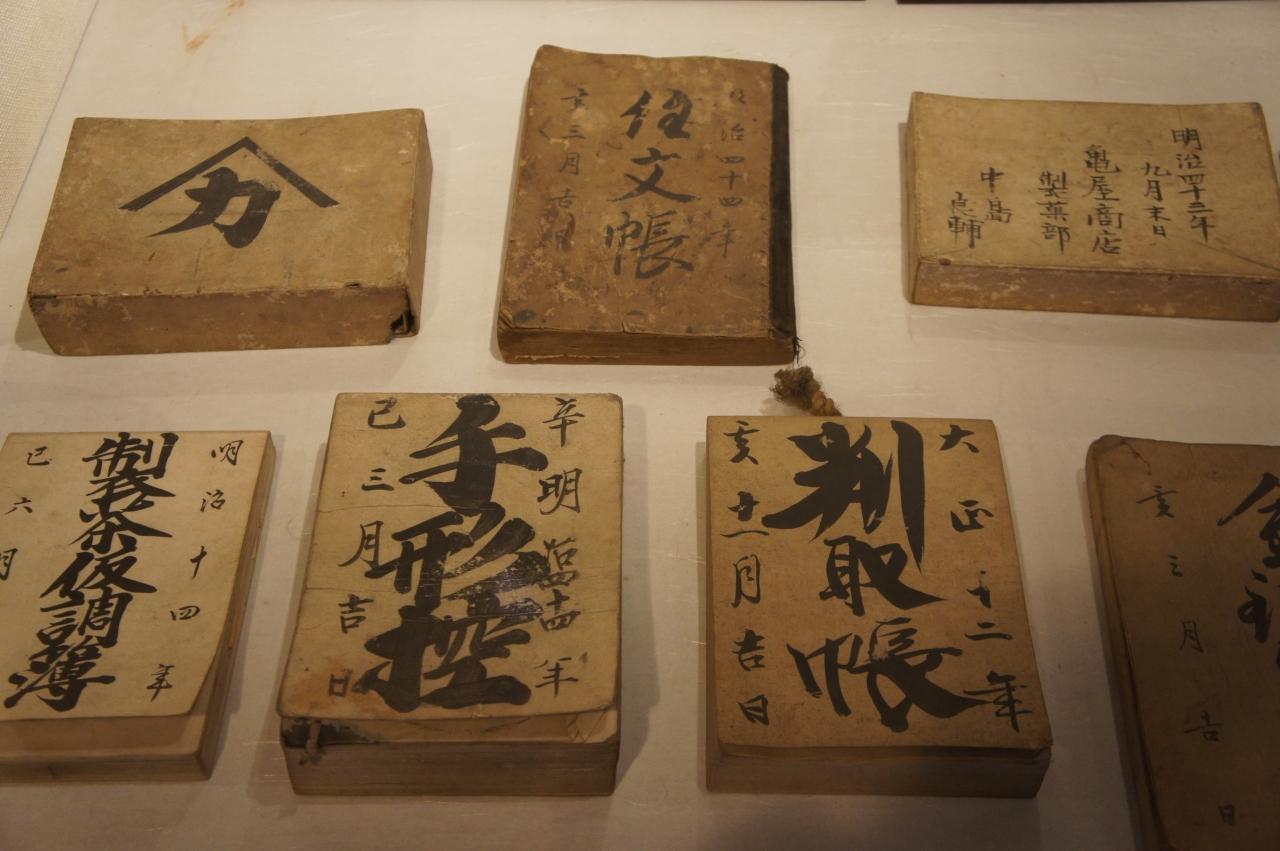 カ
明治四十四年
注文帳
亥三月吉日
明治四十二年
九月末日
亀屋商店
製菓部
中島
良輔
明治十四年
製茶仮調簿
巳六月
辛明治四十四年
手形控
己三月吉日
大正十二年
判取帳
亥廿一月吉日
亥三月吉日